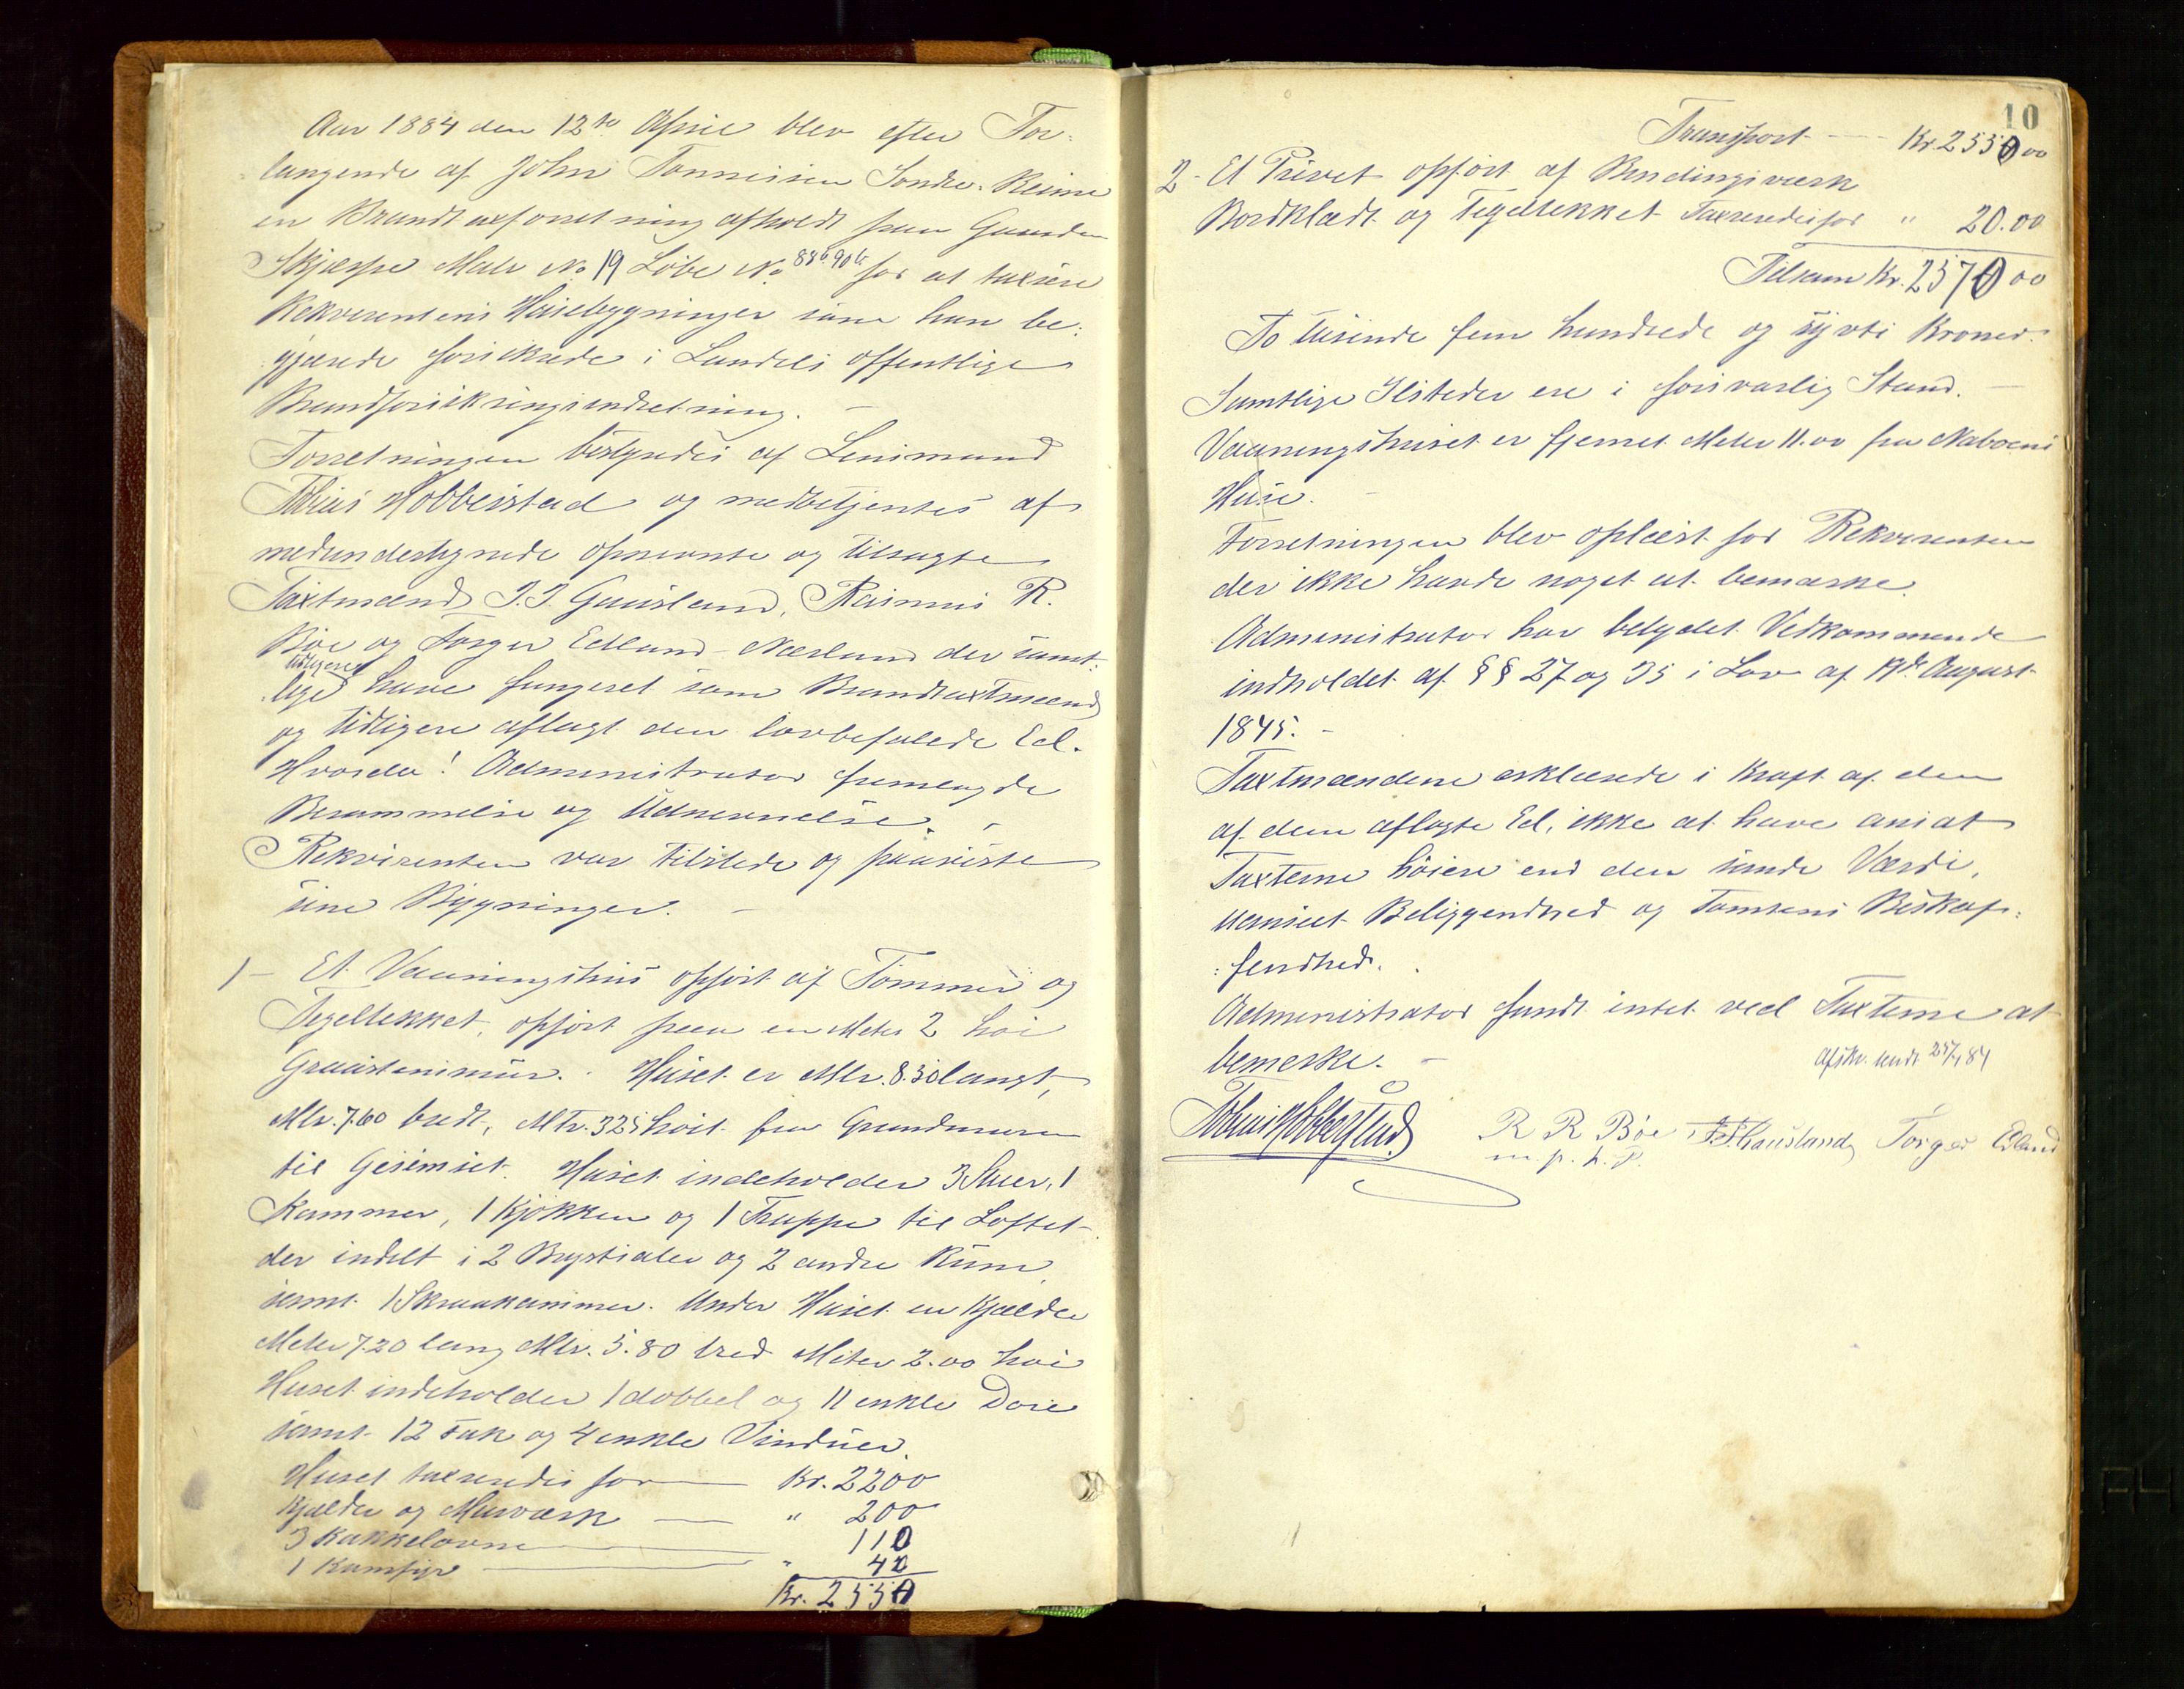 Aar 1884 den 12te April blev efter For-
langende af John Tønnesen Søndre-Reime
en Brandtaxforretning afholdt paa Gaarden
Skjærpe Matr No 19 Løbe No. 88b. 90b. for at taxere
Rekvirentens Husebygninger som han be-
gjærede forsikrede i Landets offentlige
Brandforsikringsindretning. -
Forretningen bestyredes af Lensmand
Tobias Hobberstad og medbetjentes af
medunderskrevne opnævnte og tilsagte
Taxtmænd J. J. Gausland, Rasmus R.
Bøe og Torger Edland-Nærland der samt-
lige tidligere have fungeret som Brandtaxtmænd
og tidligere aflagt den lovbefalede Ed.
Hvorda! Administrator fremlagde
Berammelse og Udnævnelse. -
Rekvirenten var tilstede og paaviste
sine Bygninger. -
1- Et Vaaningshus opført af Tømmer og
Tegeltekket, opført paa en Meter 2 høi
Graastensmur. Huset er Mtr. 8.30 langt,
Mtr. 7.60 bredt, Mtr. 3.25 høit fra Grundmuren
til Gesimset. Huset indeholder 3 Stuer, 1
Kammer, 1 Kjøkken og 1 Trappe til Loftet
der indelt i 2 Brystsaler og 2 andre Rum
samt 1 Skraakammer. Under Huset en Kjælder
Meter 7.20 lang Mtr. 5.80 bred Meter 2.00 høi
Huset indeholder 1 dobbel og 11 enkle Døre
samt 12 Fak og 4 enkle Vinduer.
Huset taxeredes for Kr. 2200
Kjælder og Murværk " 200
3 Kakkelovne 110
1 Komfyr " 40
Kr. 2550
10
Transport - Kr. 2550 00
2- Et Privet opført af Bindingsværk
Bordklædt og Tegeltekket Taxeredes for " 20.00
Tilsam Kr. 2570 00
To tusinde fem hundrede og sytti Kroner.
Samtlige Ildsteder ere i forsvarlig Stand. -
Vaaningshuset er fjernet Meter 11.00 fra Naboens
Huse. -
Forretningen blev oplæst for Rekvirenten
der ikke havde noget at bemærke.
Administrator har betydet Vedkommende
indholdet af §§ 27 og 35 i Lov af 19de August
1845. -
Taxtmændene erklærede i Kraft af den
af dem aflagte Ed, ikke at have ansat
Taxterne høiere end den sande Værdi,
uanseet Beliggendhed og Tomtens Beskaf-
fendhed.
Administrator fandt intet ved Taxterne at
bemerke. -
Afskr. sendt 25/4 84
Tobias Hobberstad R R Bøe J. J. Gausland Torger Edland
m. p. h. P.